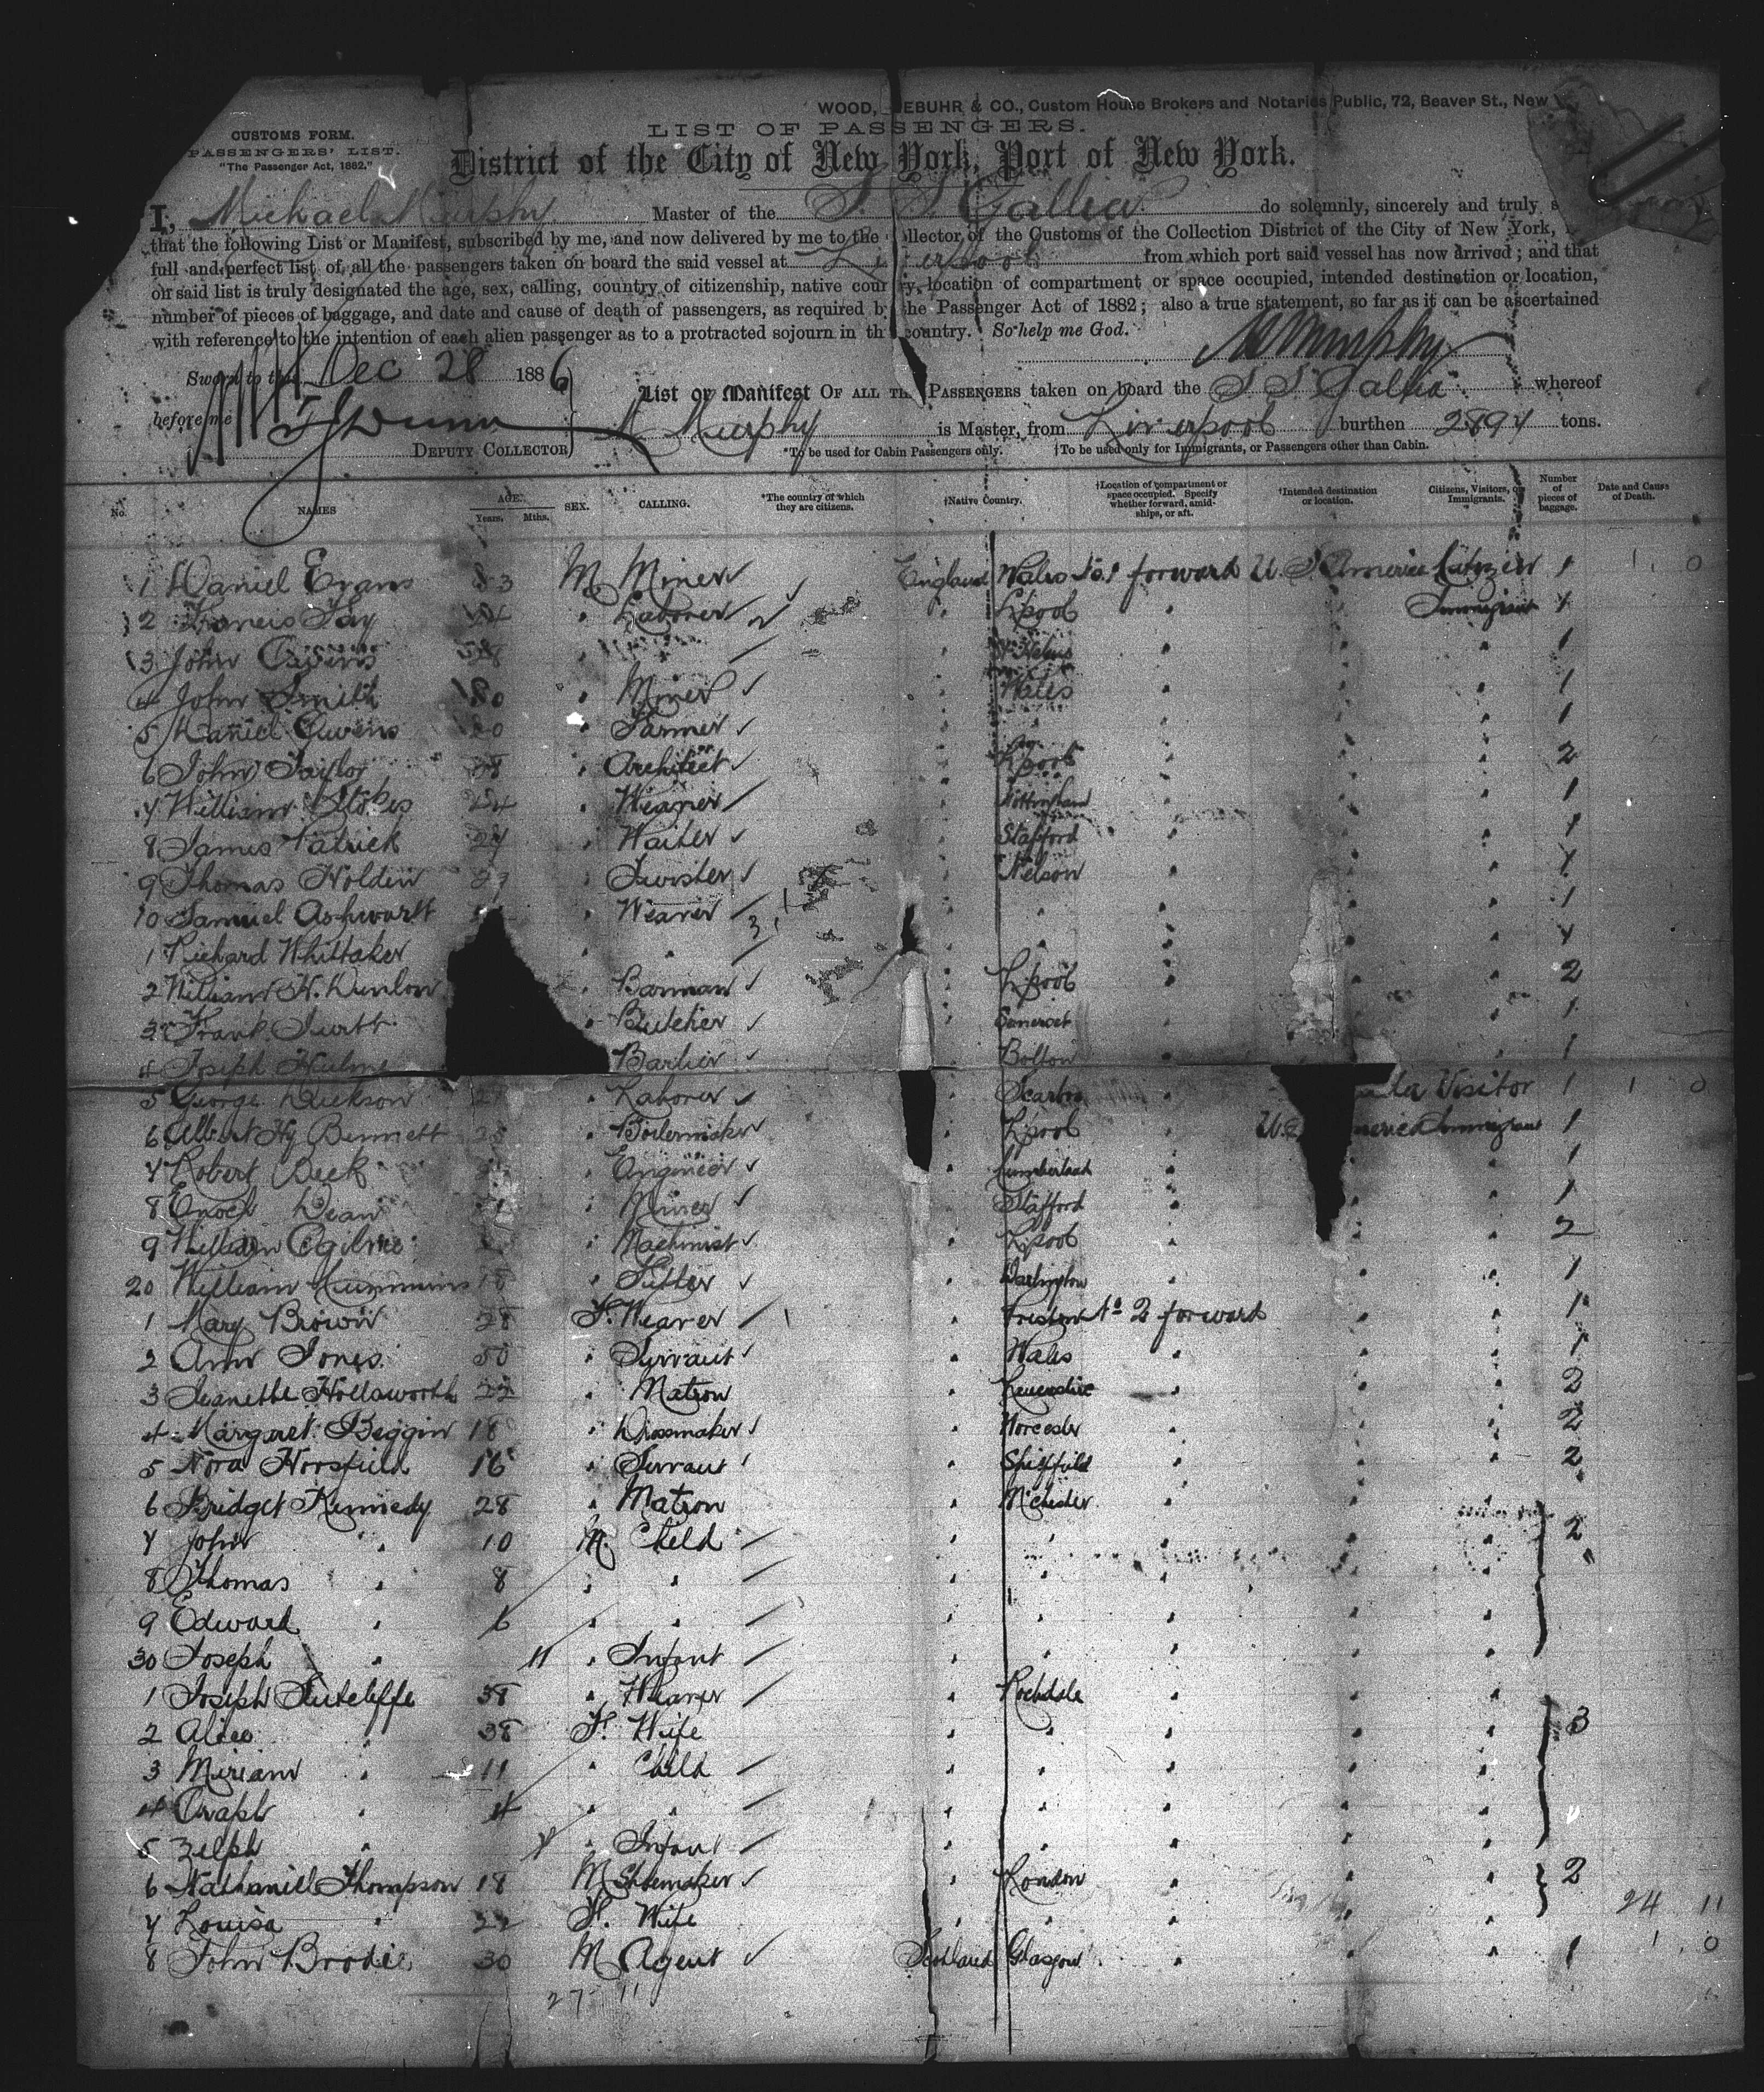 WOOD, EBUHR & CO., Custom House Brokers and Notaries Public, 72, Beaver St., New
CUSTOMS FORM.
PASSENGERS' LIST.
"The Passenger Act, 1882."
LIST OF PASSENGERS.
District of the City of New York, Port of New York.
I, Michael Murphy Master of the S. S. Gallia do solemnly, sincerely and truly s
that the following List or Manifest, subscribed by me, and now delivered by me to the llector of the Customs of the Collection District of the City of New York,
full and perfect list of all the passengers taken on board the said vessel at Li erpool from which port said vessel has now arrived; and that
on said list is truly designated the age, sex, calling, country of citizenship, native cour y, location of compartment or space occupied, intended destination or location,
number of pieces of baggage, and date and cause of death of passengers, as required b he Passenger Act of 1882; also a true statement, so far as it can be ascertained
with reference to the intention of each alien passenger as to a protracted sojourn in th country. So help me God.
M Murphy
Sworn to this Dec 28 1886
before me
T J Dunn
DEPUTY COLLECTOR
List or Manifest OF ALL THE PASSENGERS taken on board the S S Gallia whereof
M Murphy is Master, from Liverpool burthen tons.
*To be used for Cabin Passengers only. †To be used only for Immigrants, or Passengers other than Cabin.
No. NAMES AGE. Years. Mths. SEX. CALLING. *The country of which they are citizens. †Native Country. †Location of compartment or space occupied. Specify whether forward, amidships, or aft. †Intended destination or location. Citizens, Visitors, or Immigrants. Number of pieces of baggage. Date and Cause of Death.
1 Daniel Evans M Miner England Wales No. 1 forward U. S. America Citizen 1
2 Francis Fay " Laborer " Lpool " Immigrant 1
3 John Owens " " " 1
4 John Smith " Miner " Wales " " " 1
5 Daniel Owens " Farmer " " " " 1
6 John Taylor " Architect " Lpool " " " 2
7 William Stokes " Weaver " Nottingham " " " 1
8 James Patrick " Waiter " Stafford " " " 1
9 Thomas Holden " Twister " Nelson " " " 1
10 Samuel Ashworth " Weaver " " " " " 1
1 Richard Whittaker " " " " " " " 1
2 William H. Dunlon Barman " Lpool " " " 2
3 Frank " Butcher " Somerset " " " 1
4 Joseph Hulme Barber Bolton " " " 1
5 George Dickson " Laborer Scarbro da Visitor 1
6 Albert Hy Bennett " Boilermaker " Lpool " U.S merica Immigrant 1
7 Robert Beck " Engineer " Cumberland " " 1
8 Enoch Dean " Miner " Stafford " " " 1
9 William Ogilvie " Machinist " Lpool " " " 2
20 William " Fitter " Darlington " " " 1
1 Mary Brown 28 F. Weaver " Preston No 2 forward " " 1
2 Ann Jones 50 " Servant " Wales " " " 1
3 Jeanette Hollaworth 22 " Matron " " " " 2
4 Margaret Beggin 18 " Dressmaker " Worcester " " " 2
5 Nora Horsfield 16 " Servant " Sheffield " " " 2
6 Bridget Kennedy 28 " Matron " Mchester " " "
7 John " 10 M. Child " " " " " 2
8 Thomas " 8 " " " " " " "
9 Edward " 6 " " " " " " "
30 Joseph " 11 " Infant " " " " "
1 Joseph Sutcliffe 38 " Weaver " Rochdale " " "
2 Alice " 38 F. Wife " " " " " 3
3 Miriam " 11 " Child " " " " "
4 " 4 " " " " " " "
5 Zelph " " Infant " " " " "
6 Nathaniel Thompson 18 M Shoemaker " London " " " 2
7 Louisa " 22 F. Wife " " " " "
24 11
8 John Brodie 30 M Agent Scotland Glasgow " " " 1
27 11